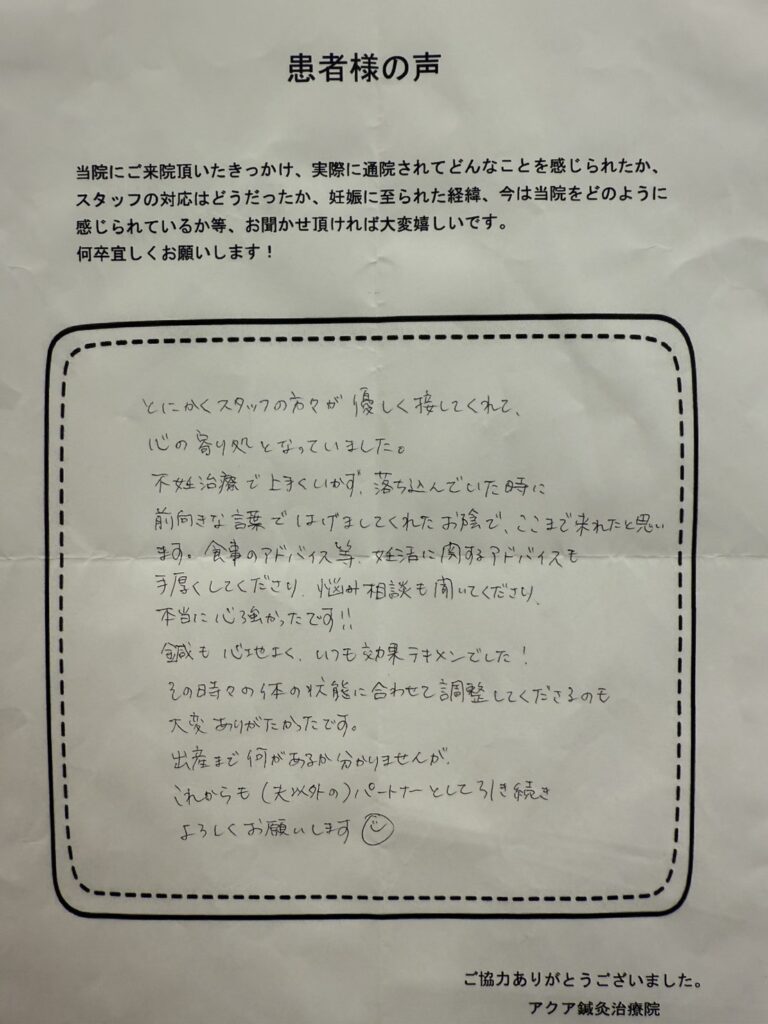 患者様の声
当院にご来院頂いたきっかけ、実際に通院されてどんなことを感じられたか、
スタッフの対応はどうだったか、妊娠に至られた経緯、今は当院をどのように
感じられているか等、お聞かせ頂ければ大変嬉しいです。
何卒宜しくお願いします！
とにかくスタッフの方々が優しく接してくれて、
心の寄り処となっていました。
不妊治療で上手くいかず、落ち込んでいた時に
前向きな言葉ではげましてくれたお陰で、ここまで来れたと思い
ます。食事のアドバイス等、妊活に関するアドバイスも
手厚くしてくださり、悩み相談も聞いてくださり、
本当に心強かったです!!
鍼も心地よく、いつも効果テキメンでした！
その時々の体の状態に合わせて調整してくださるのも
大変ありがたかったです。
出産まで何があるか分かりませんが、
これからも(夫以外の)パートナーとして引き続き
よろしくお願いします
ご協力ありがとうございました。
アクア鍼灸治療院